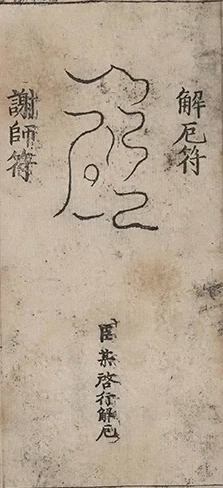 解厄符
謝師符
臣某啓行解厄